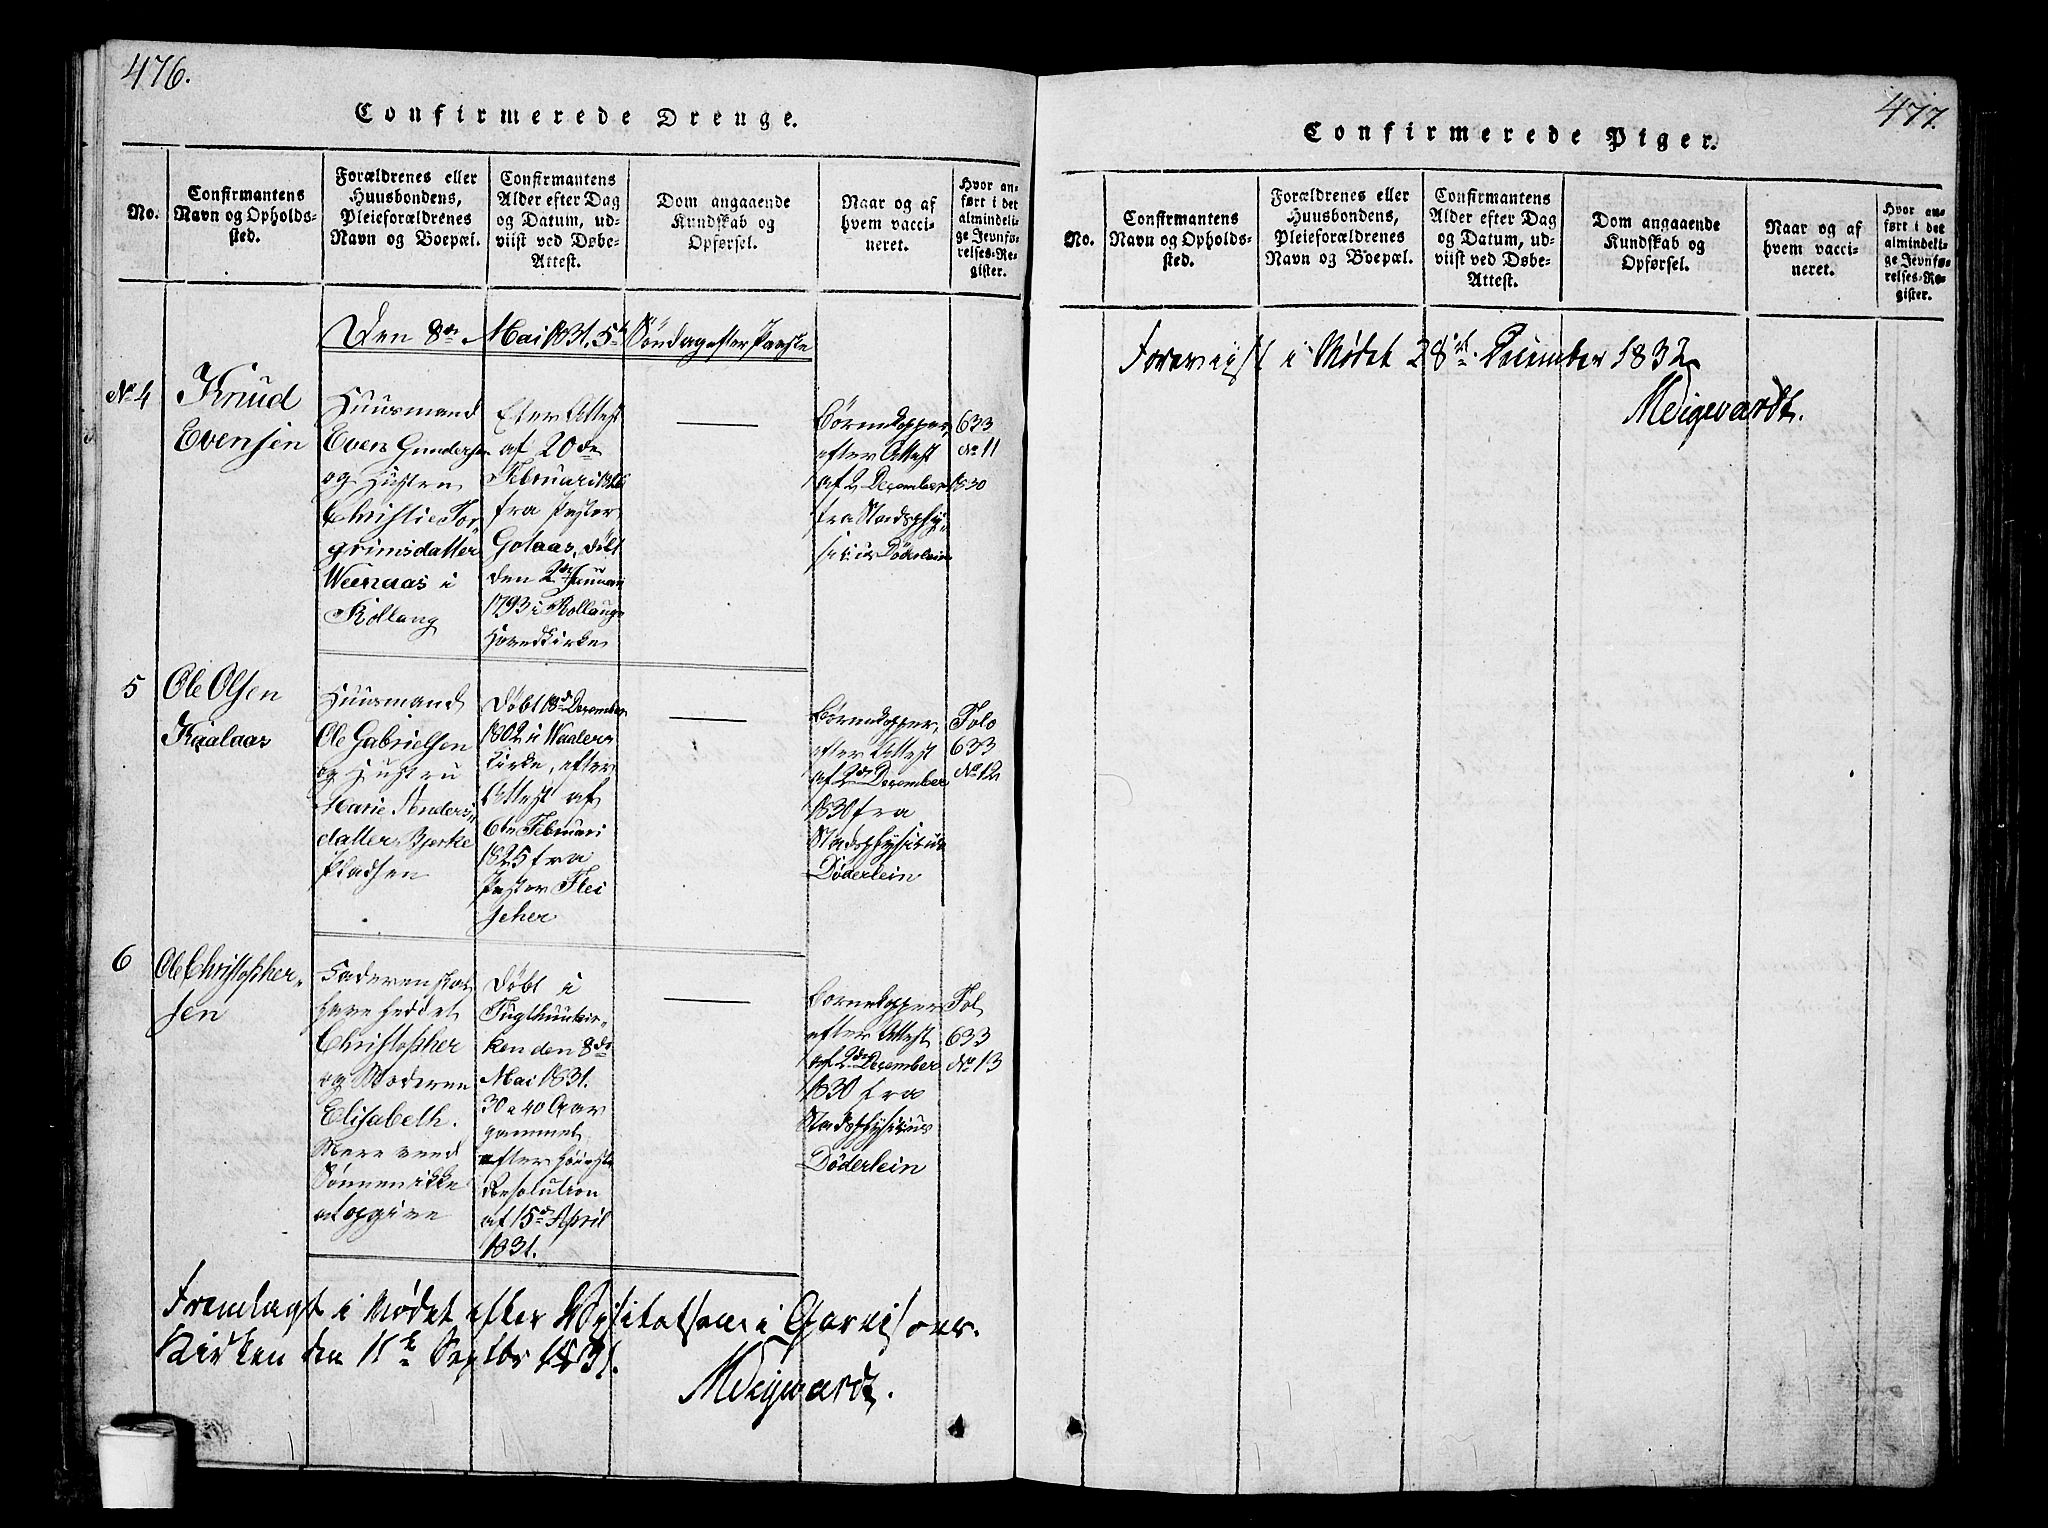 476.
Confirmerede Drenge.
No.
Confirmantens
Navn og Opholds-
sted.
Forældrenes eller
Huusbondens,
Pleieforældrenes
Navn og Boepæl.
Confirmantens
Alder efter Dag
og Datum, ud-
viist ved Døbe-
Attest.
Dom angaaende
Kundskab og
Opførsel.
Naar og af
hvem vacci-
neret.
Hvor an-
ført i det
almindeli-
ge Jevnfø-
relses-Re-
gister.
Den 8de Mai 1831. 5te Søndag efter Paaske
No 4
Knud
Evensen
Huusmand
Even Gundersen
og Hustru
Christie Tor-
grimsdatter
Weenaas i
Rollaug
Efter Attest
af 20de
Februari 1826
fra Pastor
Gotaas, døbt
den 2den Januari
1793 i Rollaugs
Hovedkirke
Børnekopper,
efter Attest
af 2 December 1830
fra Stadsphy-
sicus Döderlein
633
No 11
5
Ole Olsen
Kaalaas
Huusmand
Ole Gabrielsen
og Hustru
Marie Anders-
datter, Bjerke
Pladsen
Døbt 18de December
1802 i Waalers
Kirke, efter
Attest af
6te Februari
1825 fra
Pastor Flei
scher
Børnekopper,
efter Attest
af 2den December
1830 fra
Stadsphysicus
Döderlein
Folo
633
No 12
6
Ole Christopher-
sen
Faderen skal
have heddet
Christopher
og Moderen
Elisabeth.
Mere veed
Sønnen ikke
at opgive
Døbt i
Tugthuuskir-
ken den 8de
Mai 1831.
30 a 40 Aar
gammel,
efter Høieste
Resolution
af 15de April
1831.
Børnekopper
efter Attest
af 2den December
1830 fra
Stadsphysicus
Döderlein
Fol
633
No 13
Fremlagt i Mødet efter Visitatsen i Garnisons-
Kirken den 11te Septbr 1831.
477.
Confirmerede Piger.
No.
Confirmantens
Navn og Opholds-
sted.
Forældrenes eller
Huusbondens,
Pleieforældrenes
Navn og Boepæl.
Confirmantens
Alder efter Dag
og Datum, ud-
viist ved Døbe-
Attest.
Dom angaaende
Kundskab og
Opførsel.
Naar og af
hvem vacci-
neret.
Hvor an-
ført i det
almindeli-
ge Jevnfø-
relses-Re-
gister.
Foreviist i Mødet 28de December 1832